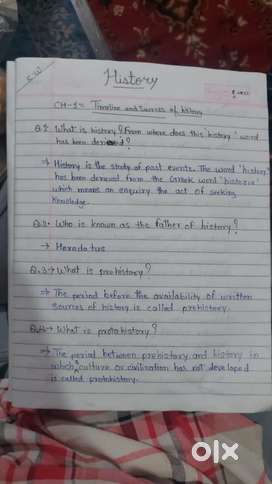 C.W
History
CH-1 → Timeline and Sources of history
Q.1 What is history? From where does this 'history' word
has been derived?
⇒ History is the study of past events. The word 'history'
has been derived from the Greek word 'historia'
which means an enquiry the act of seeking
knowledge.
Q.2. Who is known as the father of history?
→ Herodotus
Q.3 → What is prehistory?
⇒ The period before the availability of written
sources of history is called prehistory.
Q.4 → What is protohistory?
⇒ The period between prehistory and history in
which a culture or civilization has not developed
is called protohistory.
OLX